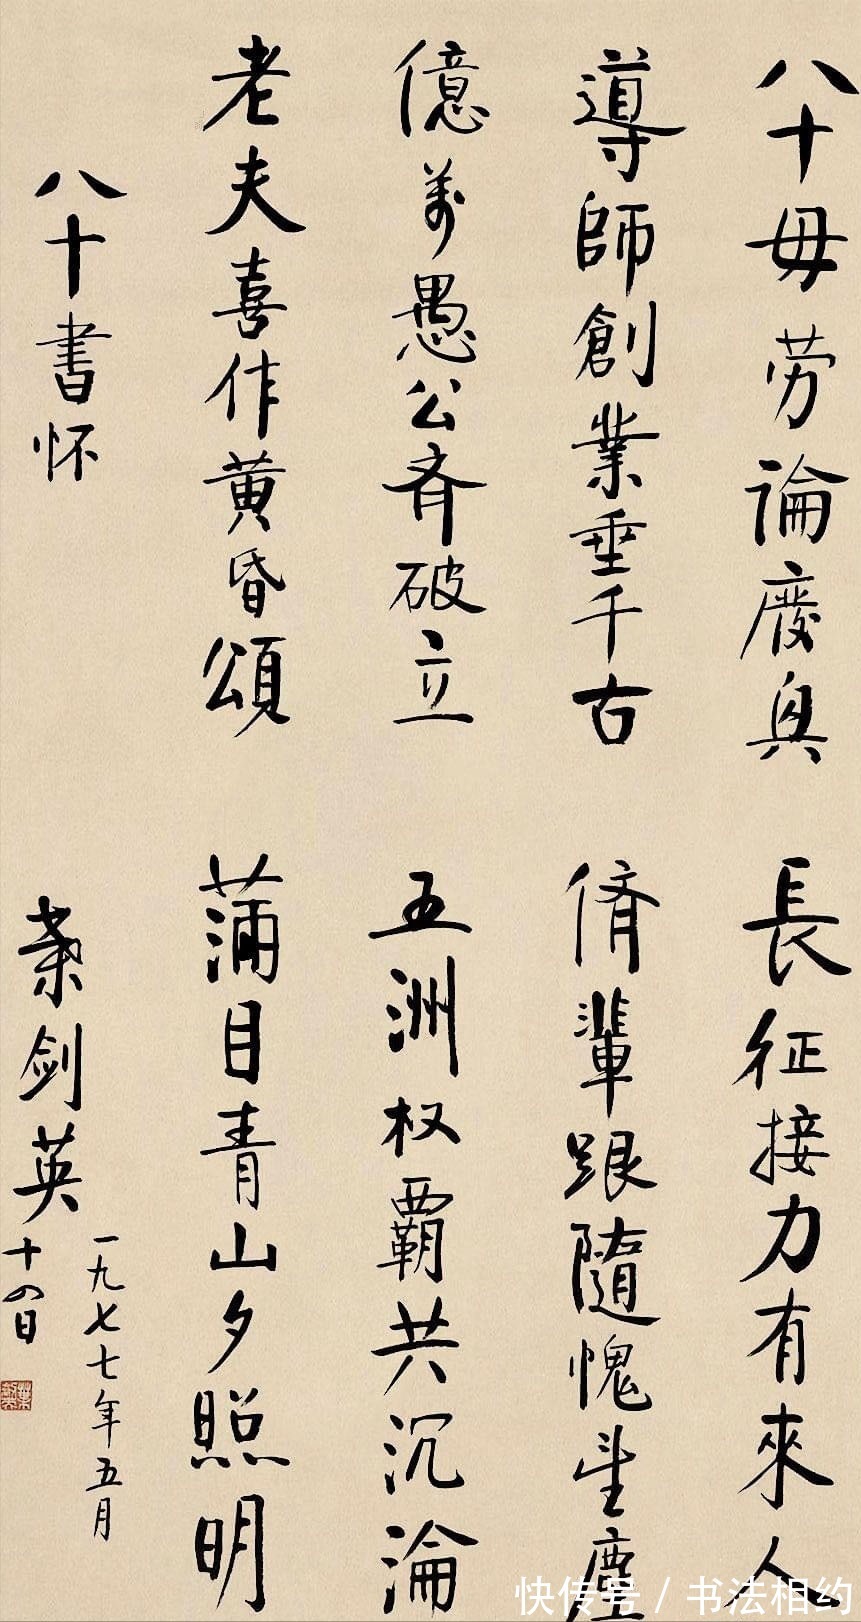 八十毋劳論廢興
長征接力有來人
導師創業垂千古
儕輩跟隨愧望塵
億萬愚公齊破立
五洲权覇共沉淪
老夫喜作黄昏頌
满目青山夕照明
八十書怀
葉剑英
一九七七年五月
十四日
快传号 / 书法相约